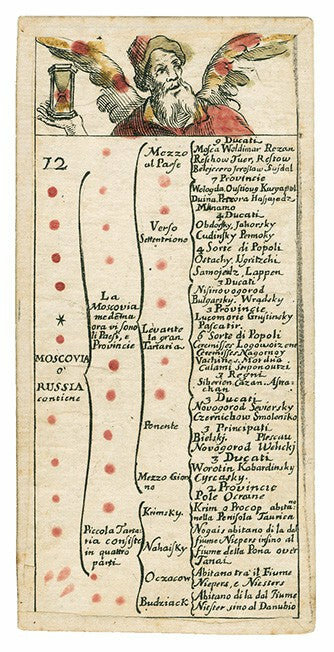 12
MOSCOVIA
O'
RUSSIA
contiene
La
Moscovia
medema
ora vi sono
li Paesi, e
Provincie
Piccola Tana
ria consiste
in quattro
parti
Mezzo
al Paese
Verso
Settentrione
Levante
la gran
Tartaria
Ponente
Mezzo Gior
no
Krimsky
Nahaisky
Oczacow
Budziack
9 Ducati
Mosca Woldimar Rezan
Reschow Tuer, Rostow
Belejezero Jeroslaw Susdal
7 Provincie
Wologda Oustioug Kargapol
Duina
4 Ducati
Obdorsky, Jahorsky
Cudinsky Permoky
4 Sorte di Popoli
Ostachy, Ugritzchi
Samojedz, Lappen
3 Ducati
Nisinovogorod
Bulgarsky, Wradsky
3 Provincie
Lucomorie Grustinsky
Pascatir
6 Sorte di Popoli
Ceremisses
Ceremisses Nagornoy
Mordua
3 Regni
Siberien, Cazan, Astra
chan
3 Ducati
Novogorod Seversky
Czernichow Smolonsko
3 Principati
Bielskj, Plescou
Novogorod Welickj
3 Ducati
Worotin Kabardinsky
Cyrcasky
2 Provincie
Pole Ocrane
Krim o Procop abita
nella Penisola Taurica
Nogais abitano di la del
fiume Niepers insino al
fiume della Pona over
Tanai
Abitano tra il Fiume
Niepers, e Niesters
Abitano di la dal Fiume
Niester sino al Danubio